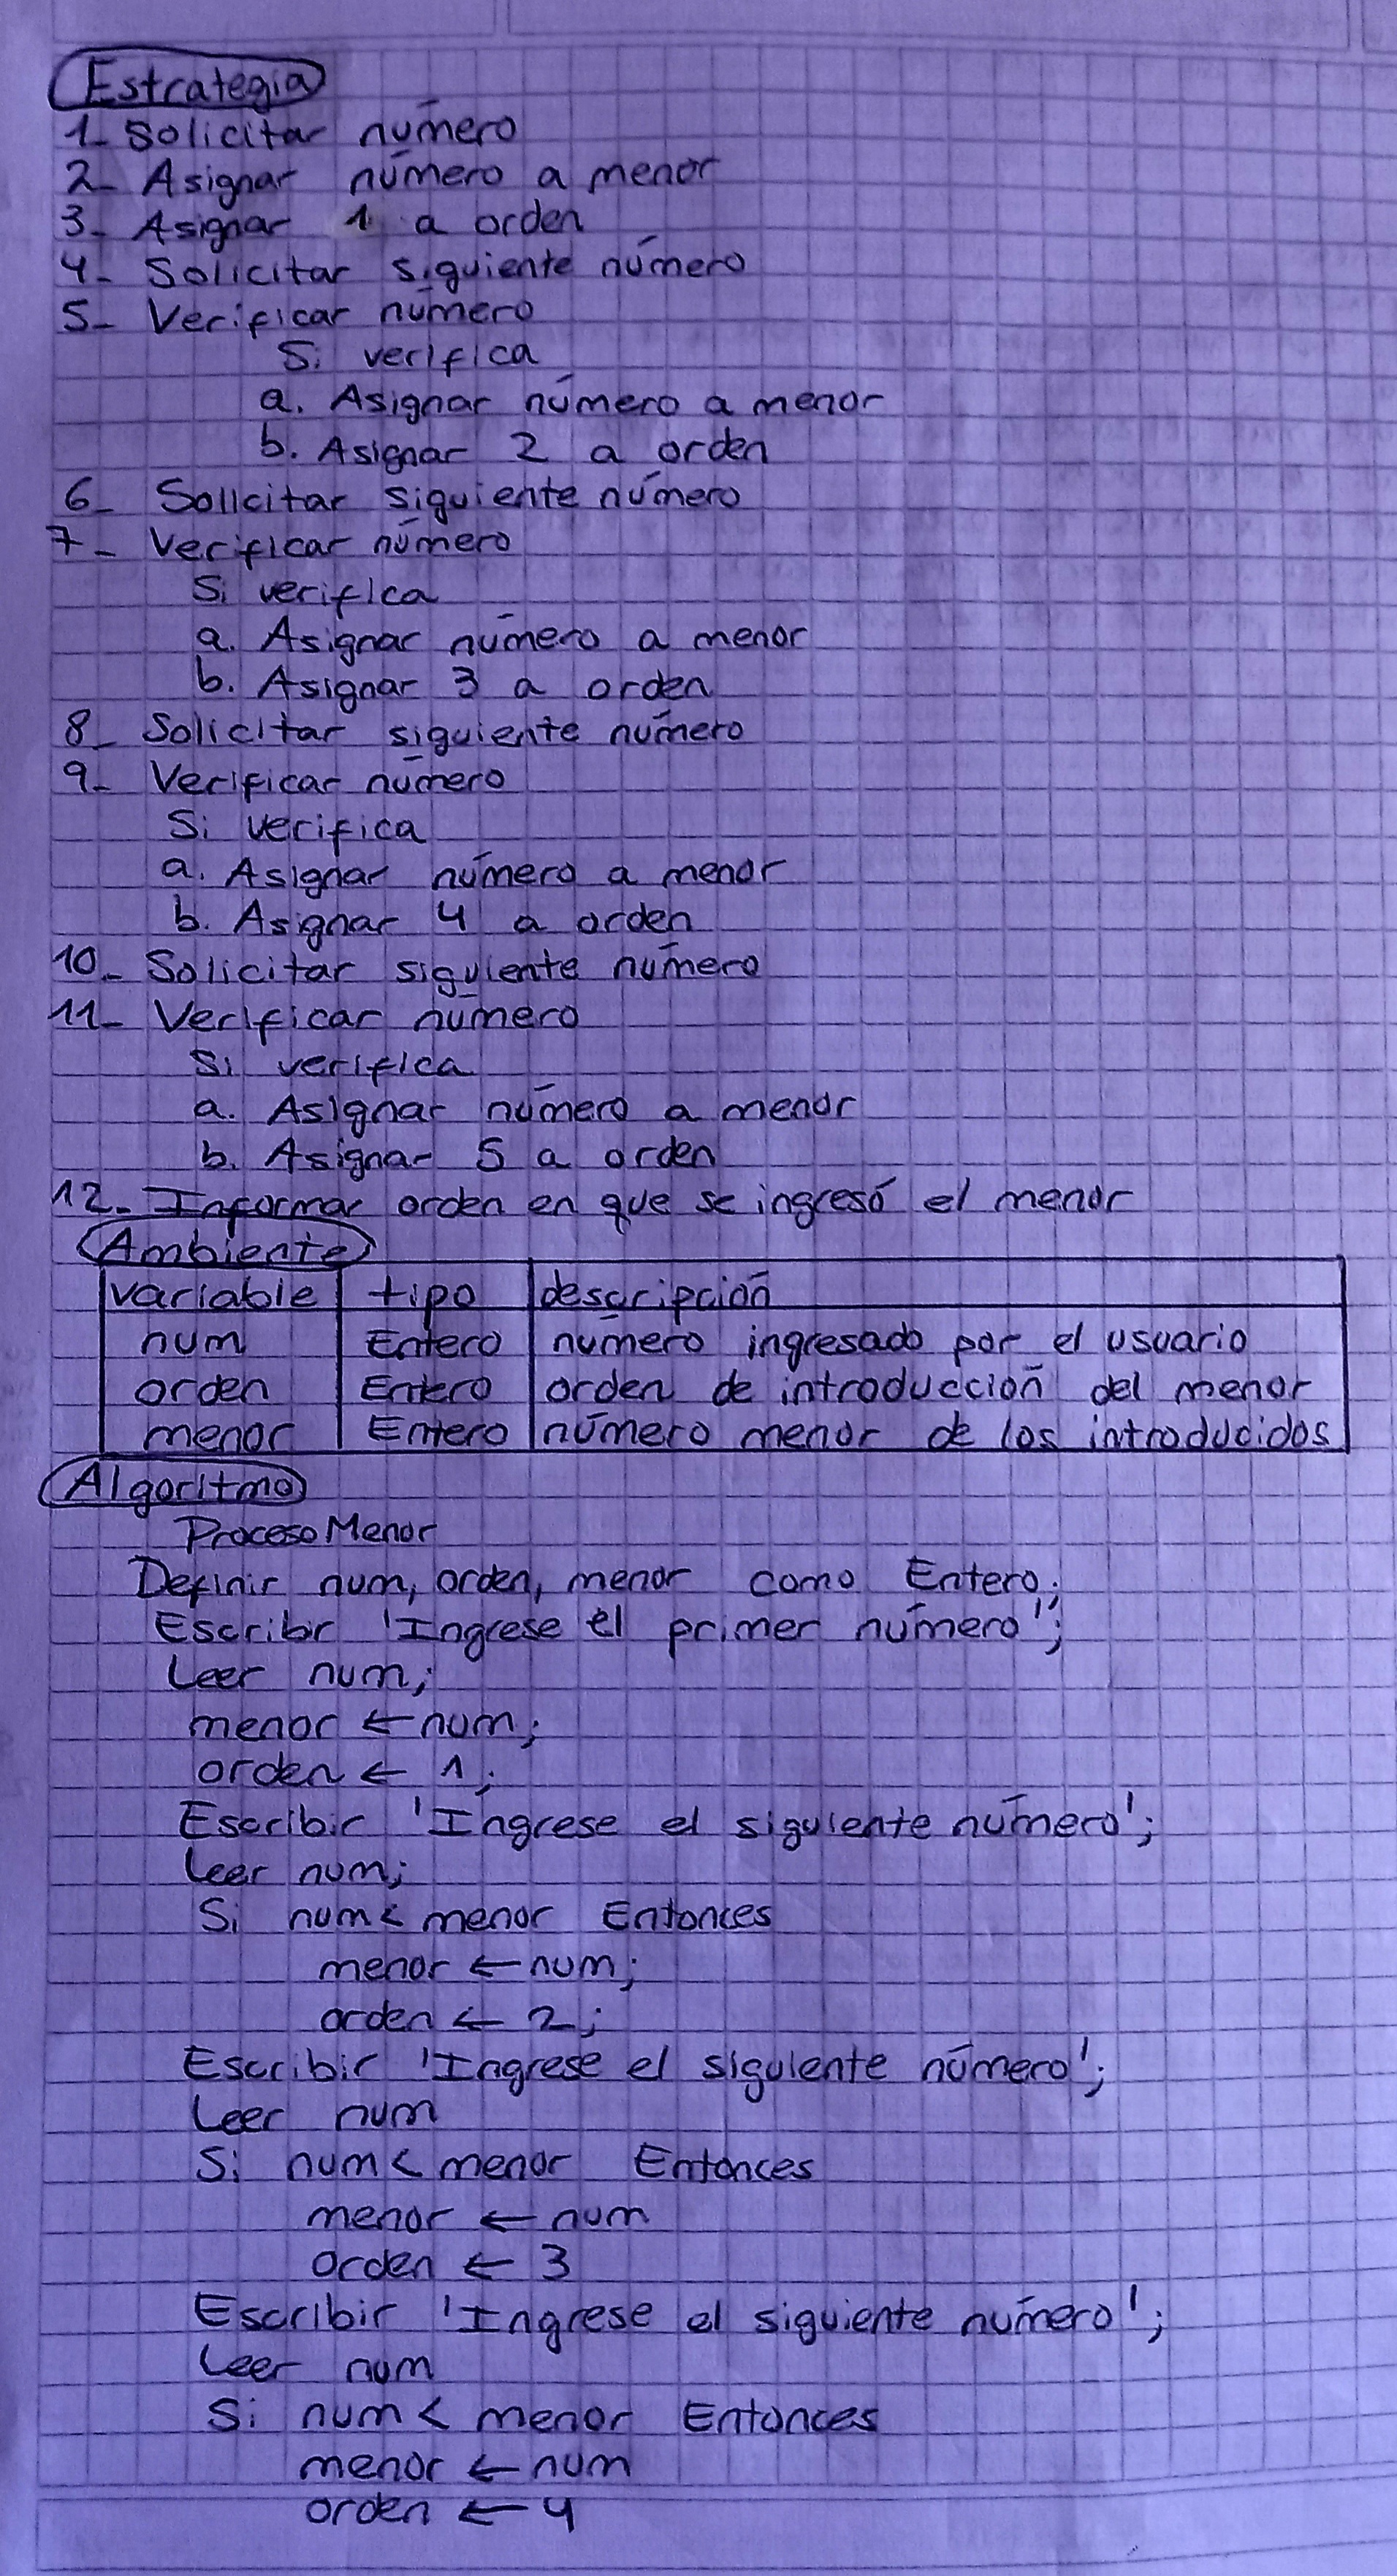 Estrategia
1- Solicitar número
2- Asignar número a menor
3- Asignar 1 a orden
4- Solicitar siguiente número
5- Verificar número
Si verifica
a. Asignar número a menor
b. Asignar 2 a orden
6- Solicitar siguiente número
7- Verificar número
Si verifica
a. Asignar número a menor
b. Asignar 3 a orden
8- Solicitar siguiente número
9- Verificar número
Si verifica
a. Asignar número a menor
b. Asignar 4 a orden
10- Solicitar siguiente número
11- Verificar número
Si verifica
a. Asignar número a menor
b. Asignar 5 a orden
12- Informar orden en que se ingresó el menor
Ambiente
variable tipo descripción
num Entero número ingresado por el usuario
orden Entero orden de introducción del menor
menor Entero número menor de los introducidos
Algoritmo
Proceso Menor
Definir num, orden, menor como Entero;
Escribir 'Ingrese el primer número';
Leer num;
menor ← num;
orden ← 1;
Escribir 'Ingrese el siguiente número';
Leer num;
Si num < menor Entonces
menor ← num;
orden ← 2;
Escribir 'Ingrese el siguiente número';
Leer num
Si num < menor Entonces
menor ← num
orden ← 3
Escribir 'Ingrese el siguiente número';
Leer num
Si num < menor Entonces
menor ← num
orden ← 4